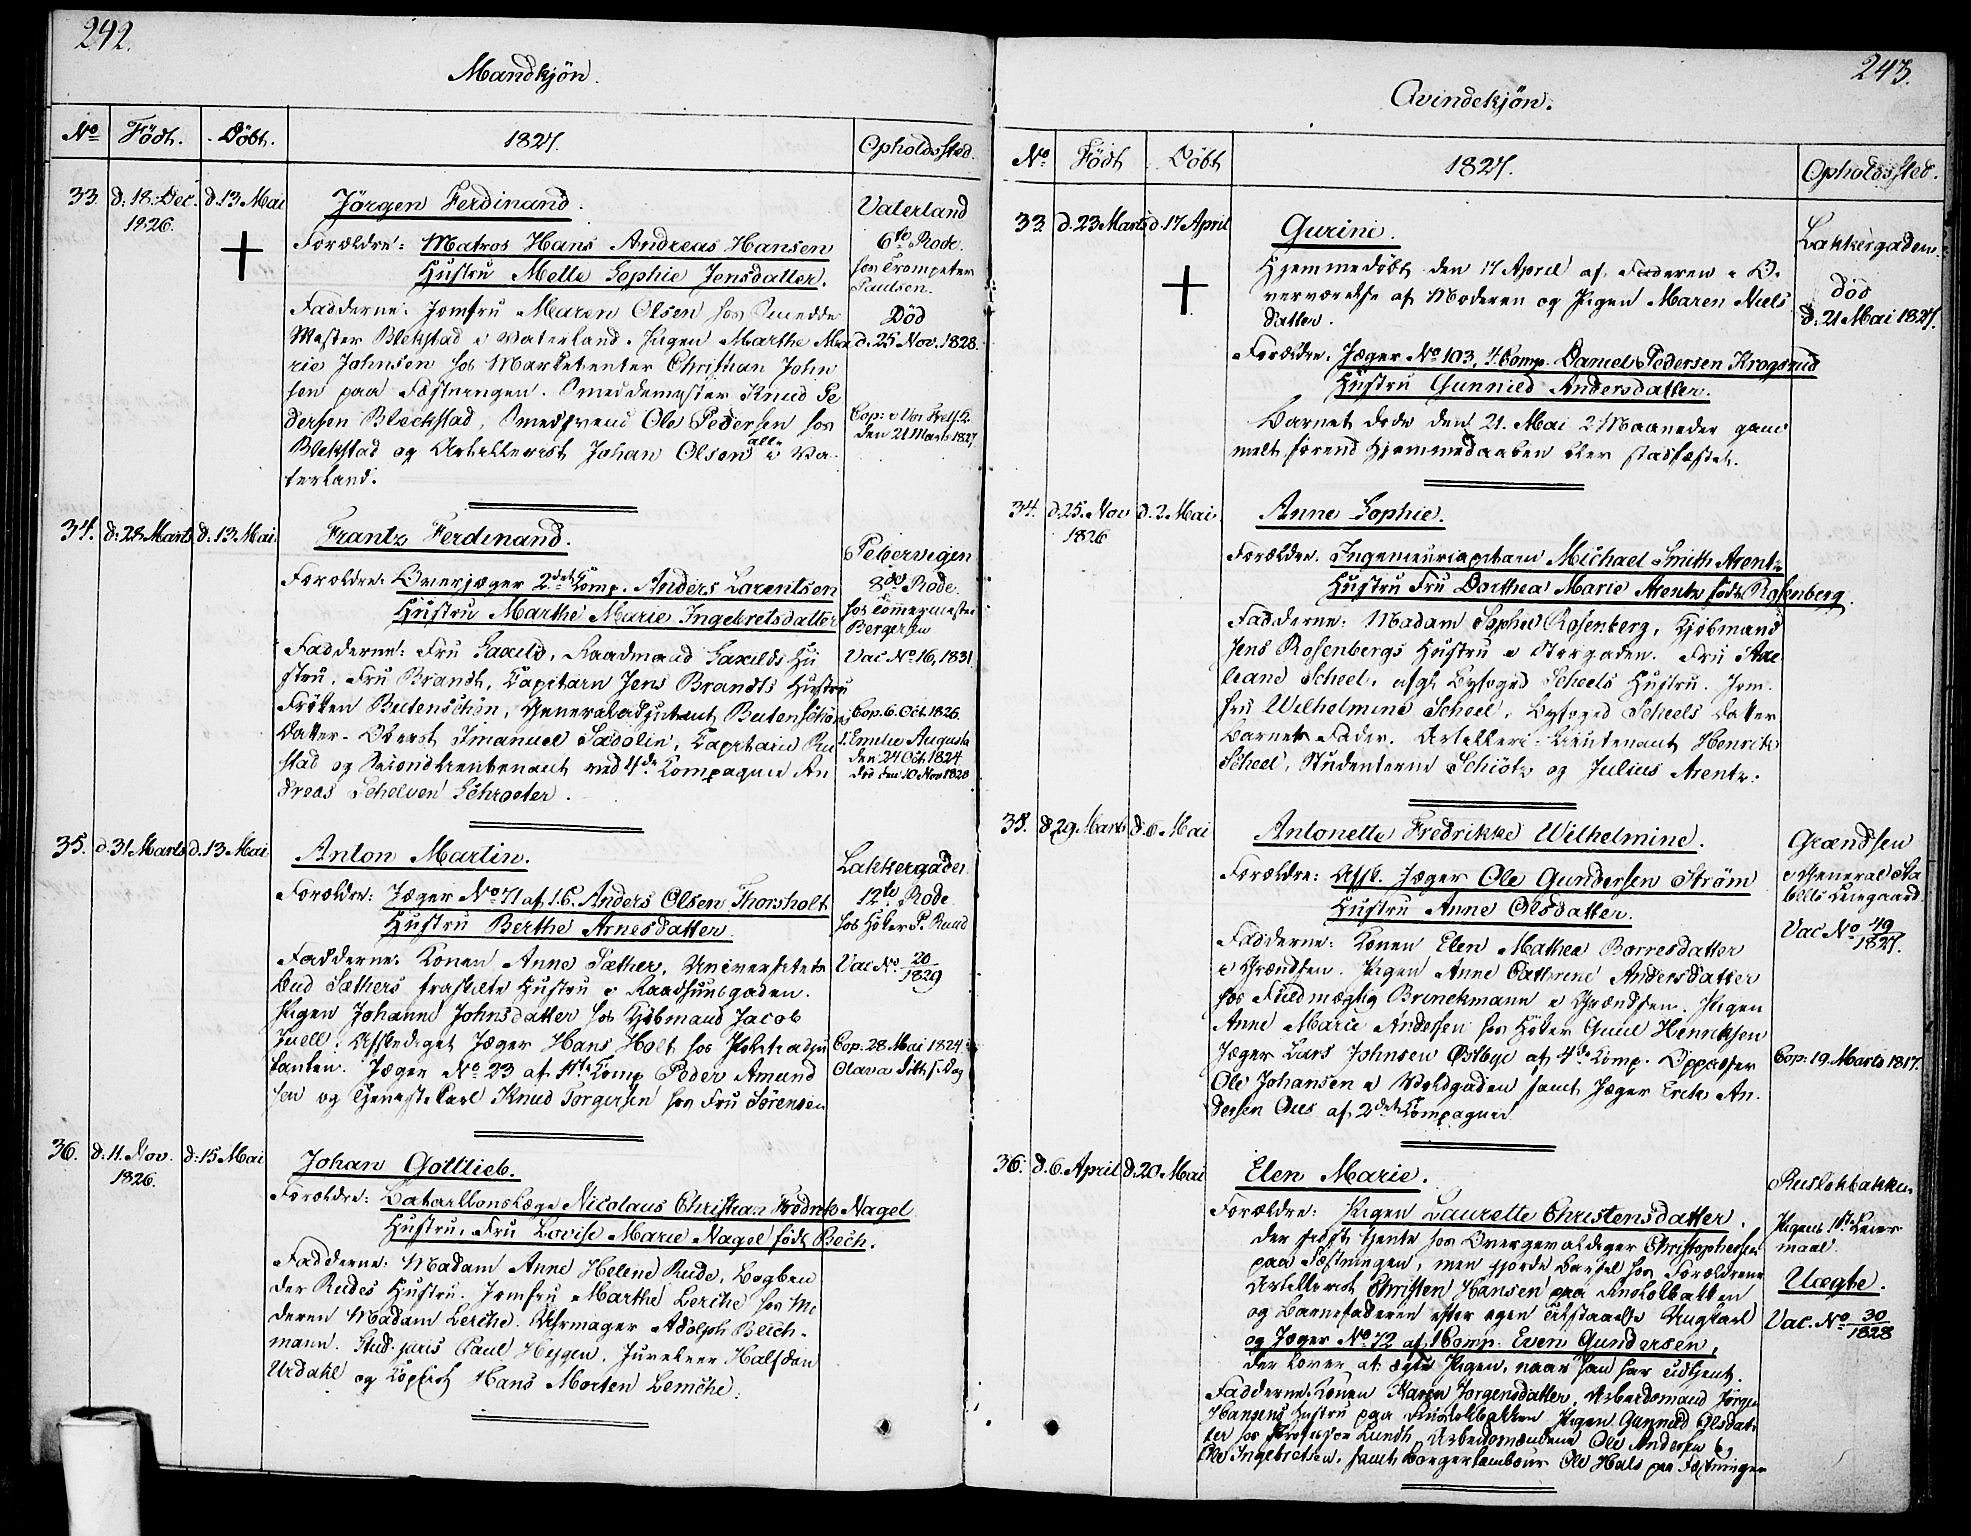 242.
Mandkjön.
No Födt. Döbt. 1827. Opholdssted.
33 d. 18. Dec. 1826. d. 13 Mai
Jörgen Ferdinand.
Forældre: Matros Hans Andreas Hansen
Hustru Mette Sophie Jensdatter.
Fadderne: Jomfru Maren Olsen hos Smedde
Mester Blekstad i Vaterland. Pigen Marthe Ma
rie Johnsen hos Marketenter Christian John
sen paa Fæstningen. Smeddemester Knud Pe
dersen Bleckstad, Smedsvend Ole Pedersen hos
Blekstad og Artillerist Johan Olsen alle i Va
terland.
Vaterland
6te Rode.
hos Trompeter
Paulsen.
Död
d. 25 Nov. 1828.
Cop: i Vor Frels. K.
den 21 Marts 1827
34. d. 28 Marts d. 13 Mai
Frantz Ferdinand.
Forældre: Overjæger 2det Comp. Anders Larentsen
Hustru Marthe Marie Ingebretsdatter
Fadderne: Fru Saxild, Raadmand Saxilds Hu
stru, Fru Brandt, Capitain Jens Brandts Hustru
Fröken Butenschön, Generaladjutant Butenschöns
Datter. Oberst Imanuel Sadolin, Capitain Ru
stad og Secondlieutenant ved 4de Compagnie An
dreas Schelven Schroeter.
Pebervigen
8de Rode.
hos Tömermester
Bergersen
Vac No 16, 1831.
Cop. 6. Oct. 1826.
1. Emelie Augusta
den 24 Oct. 1824
död den 10 Nov 1828
35. d. 31 Marts d. 13 Mai
Anton Martin.
Forældre: Jæger No 71 af 1. C. Anders Olsen Thorsholt
Hustru Berthe Arnesdatter.
Fadderne: Konen Anne Sæther, Universitets
bud Sæthers fraskilte Hustru i Raadhuusgaden.
Pigen Johanne Johnsdatter hos Kjöbmand Jacob
Juell. Afskediget Jæger Hans Holt hos Politiadju
tanten. Jæger No 23 af 1ste Comp Peder Amund
sen og Tjeneste Karl Knud Torgersen hos Fru Sörensen
Lakkergaden
12te Rode.
hos Höker P. Ruud
Vac No 20/1829
Cop. 28 Mai 1824
Olava
36. d. 11. Nov. 1826. d. 15 Mai
Johan Gottlieb.
Forældre: Bataillonslæge Nicolaus Christian Fredrik Nagel
Hustru, Fru Lovise Marie Nagel födt Bech.
Fadderne: Madam Anne Helene Rude, Bogbin
der Rudes Hustru. Jomfru Marthe Lerche hos Mo
deren Madam Lerche. Uhrmager Adolph Bleich-
mann. Stud. juris Paul Heygen. Juveleer Halfdan
Urdahl og Copiist Hans Morten Lemche.
243.
Qvindekjön.
No Födt Döbt 1827. Opholdssted.
33. d. 23 Marts d. 17 April
Gurine.
Hjemmedöbt den 17 April af Faderen i O-
verværelse af Moderen og Pigen Maren Niels
datter.
Forældre. Jæger No 103, 4 Comp. Daniel Pedersen Krogsrud
Hustru Gunnild Andersdatter.
Barnet döde den 21. Mai 2 Maaneder gam
melt forend Hjemmedaaben blev stadfæstet.
Lakkergaden.
död
d. 21 Mai 1827.
34. d. 25. Nov 1826 d. 2. Mai.
Anne Sophie.
Forældre. Ingenieurcapitain Michael Smith Arentz
Hustru Fru Dorthea Marie Arentz födt Rosenberg.
Fadderne: Madam Sophie Rosenberg, Kjöbmand
Jens Rosenbergs Hustru i Storgaden. Fru
Scheel, afgl. Byfoged Scheels Hustru. Jom-
fru Wilhelmine Scheel, Byfoged Scheels Datter
Barnets Fader. Artilleri-Lieutenant Henrik
Scheel, Studenterne Schiötz og Julius Arentz.
35. d. 29. Marts d. 6. Mai
Antonette Fredrikke Wilhelmine.
Forældre: Afsk. Jæger Ole Gundersen Ström
Hustru Anne Olsdatter.
Fadderne: Konen Elen Mathea Borresdatter
i Grændsen. Pigen Anne Cathrine Andersdatter
hos Fuldmægtig Brinckmann i Grændsen. Pigen
Anne Marie Andersen hos Höker Guul Henriksen
Jæger Lars Johnsen Östbye af 4de Comp. Oppasser
Ole Johansen i Voldgaden samt Jæger Erik An-
dersen Oies af 2det Compagnie
Grændsen
i General Sta
bells Leiegaard.
Vac No 49/1827.
Cop. 19. Marts 1817.
36. d. 6. April d. 20 Mai
Elen Marie.
Forældre: Pigen Laurette Christensdatter,
der sidst tjente hos Overgevaldiger Christophersen
paa Fæstningen, men gjorde Barsel hos Forældrene
Artillerist Christen Hansen paa Ruslökbakken
og Barnefaderen efter egen Tilstaaelse Ungkarl
og Jæger No 72 af 1 Comp. Even Gundersen,
der lover at ægte Pigen, naar han har udtjent.
Fadderne. Konen Karen Jorgensdatter, Arbeidsmand Jörgen
Hansens Hustru paa Ruslökbakken Pigen Gunnild Olsdat-
ter hos Professor Lundh, Arbeidsmændene Ole Andersen og
Ole Ingebretsen, samt Borgertambour Ole Hals paa Fæstningen
Ruslökbakken
Pigens 1ste Leier
maal.
Uægte.
Vac. No 30/1828